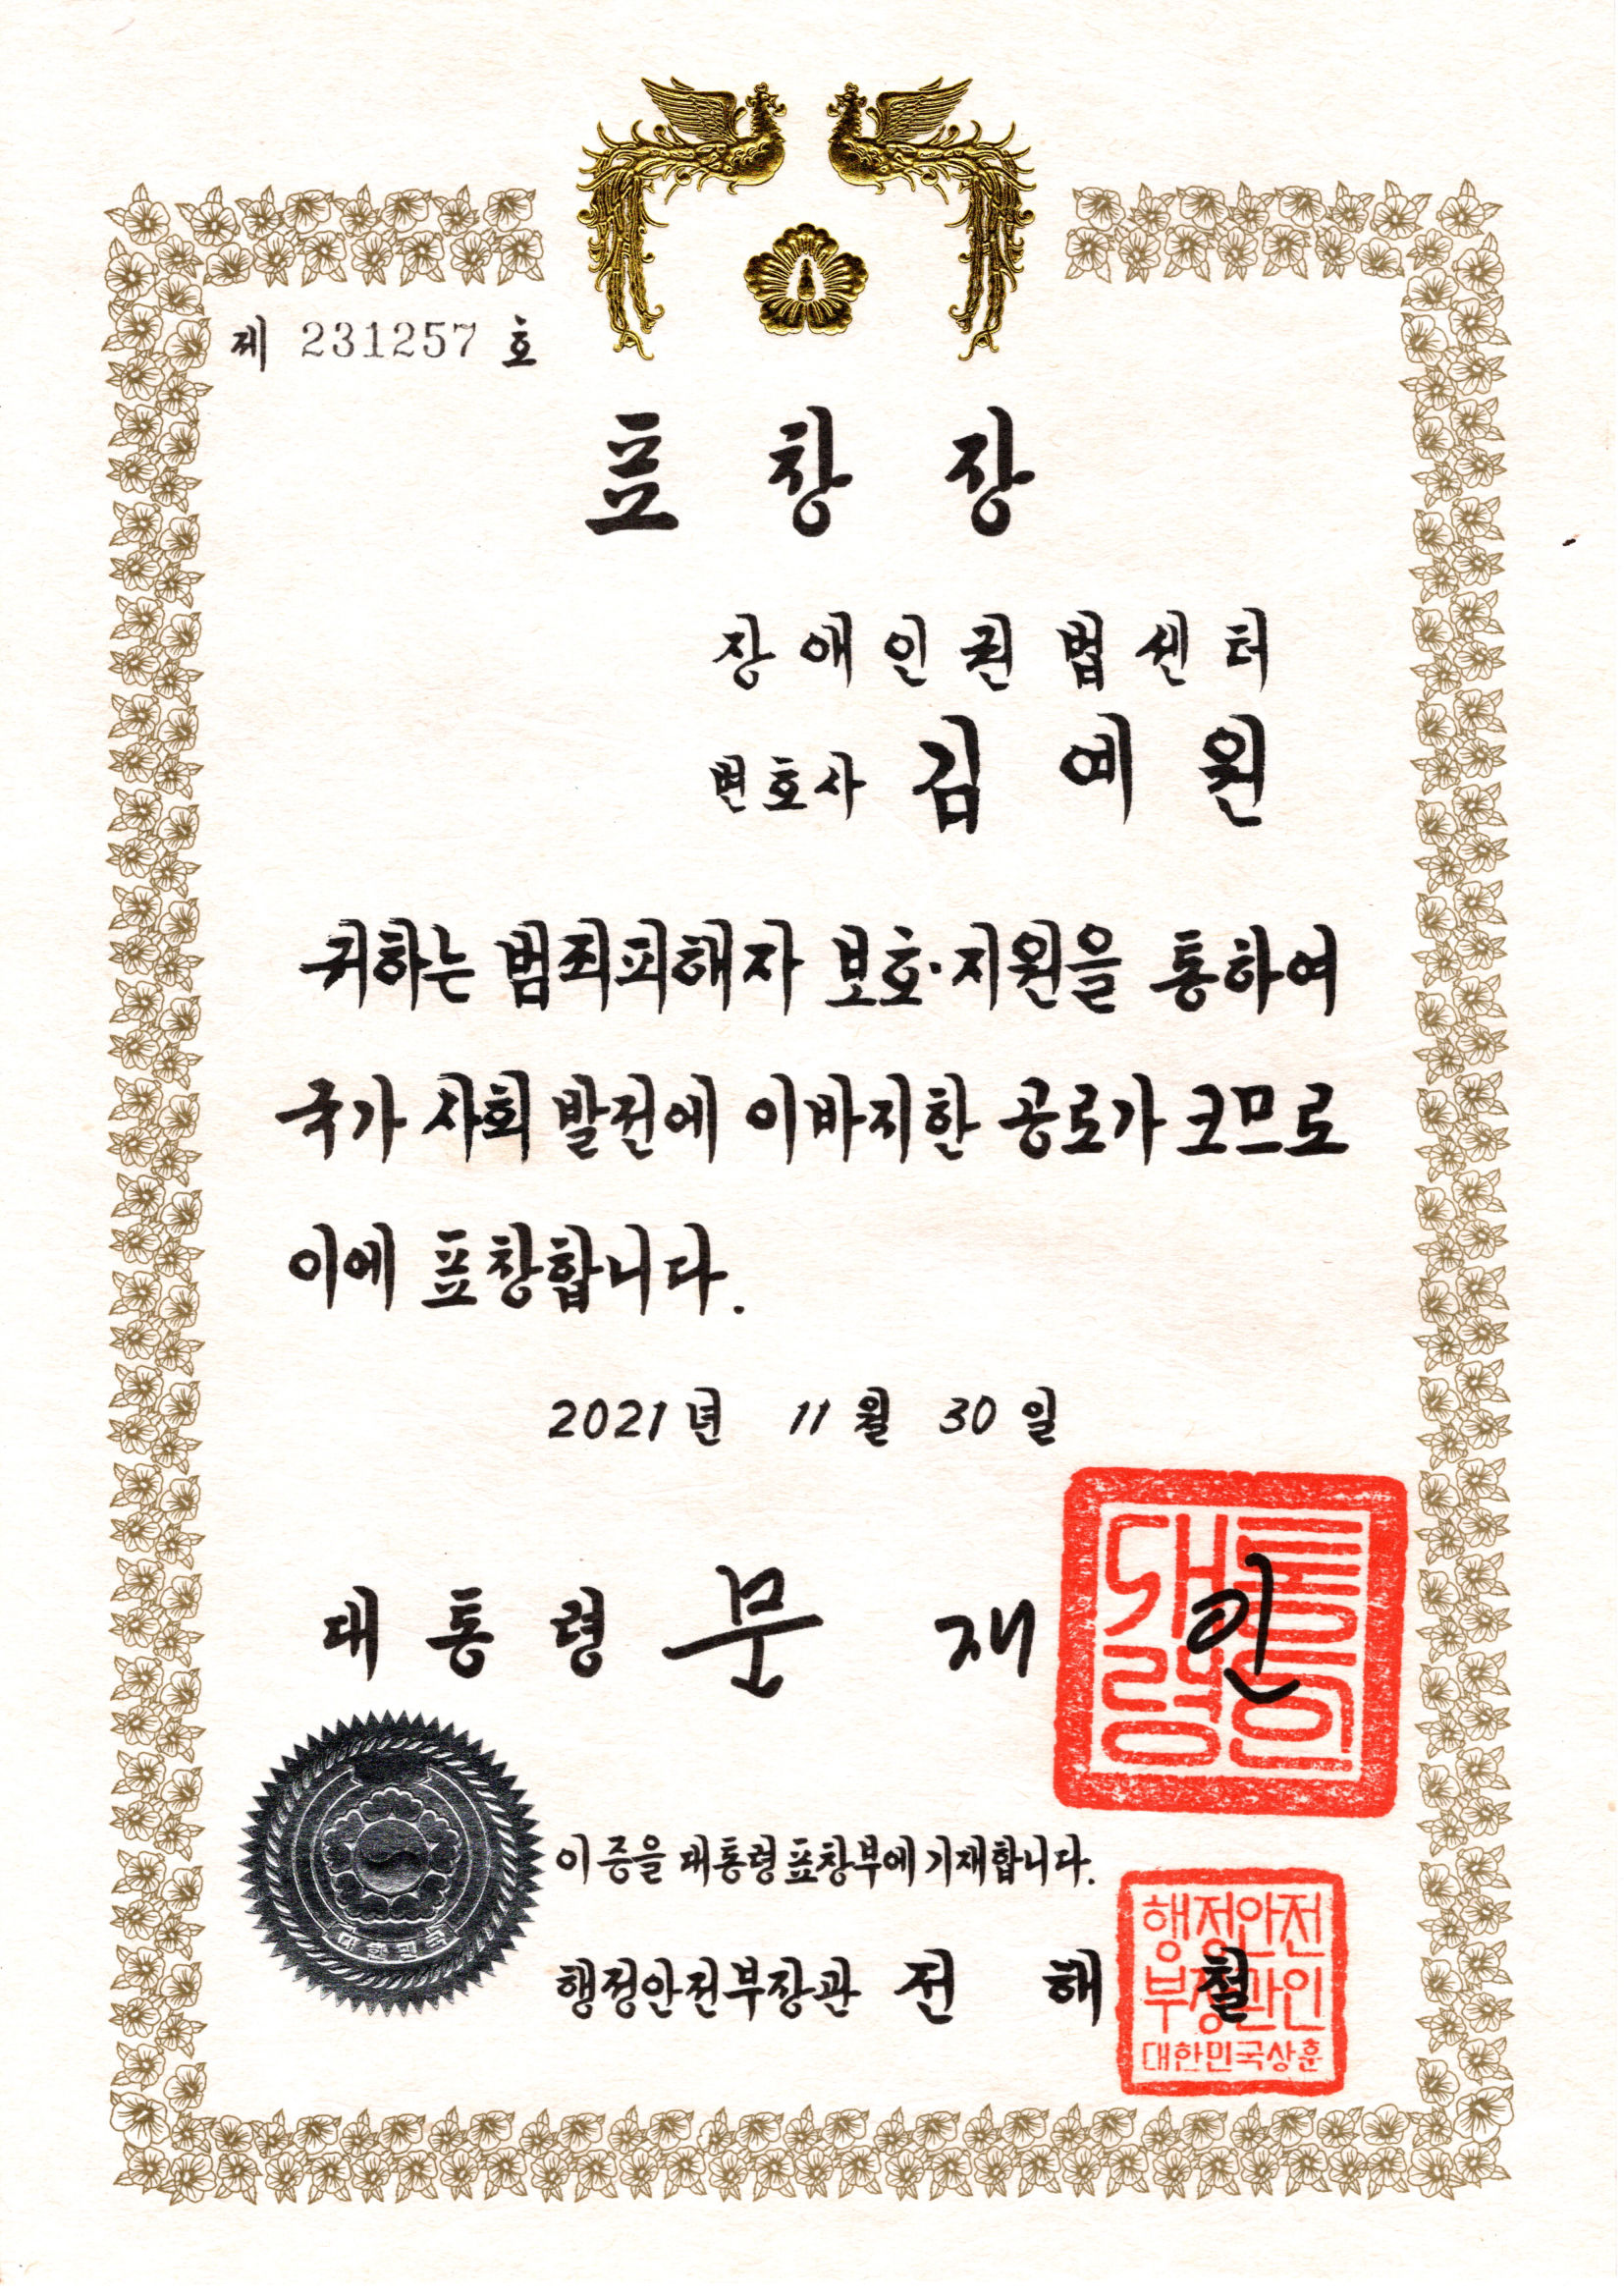 제 231257 호
표 창 장
장애인권법센터
변호사 김 예 원
귀하는 범죄피해자 보호·지원을 통하여
국가 사회 발전에 이바지한 공로가 크므로
이에 표창합니다.
2021년 11월 30일
대통령 문 재 인
대통령인
이 증을 대통령표창부에 기재합니다.
행정안전부장관 전 해 철
행정안전
부장관인
대한민국상훈
대한민국